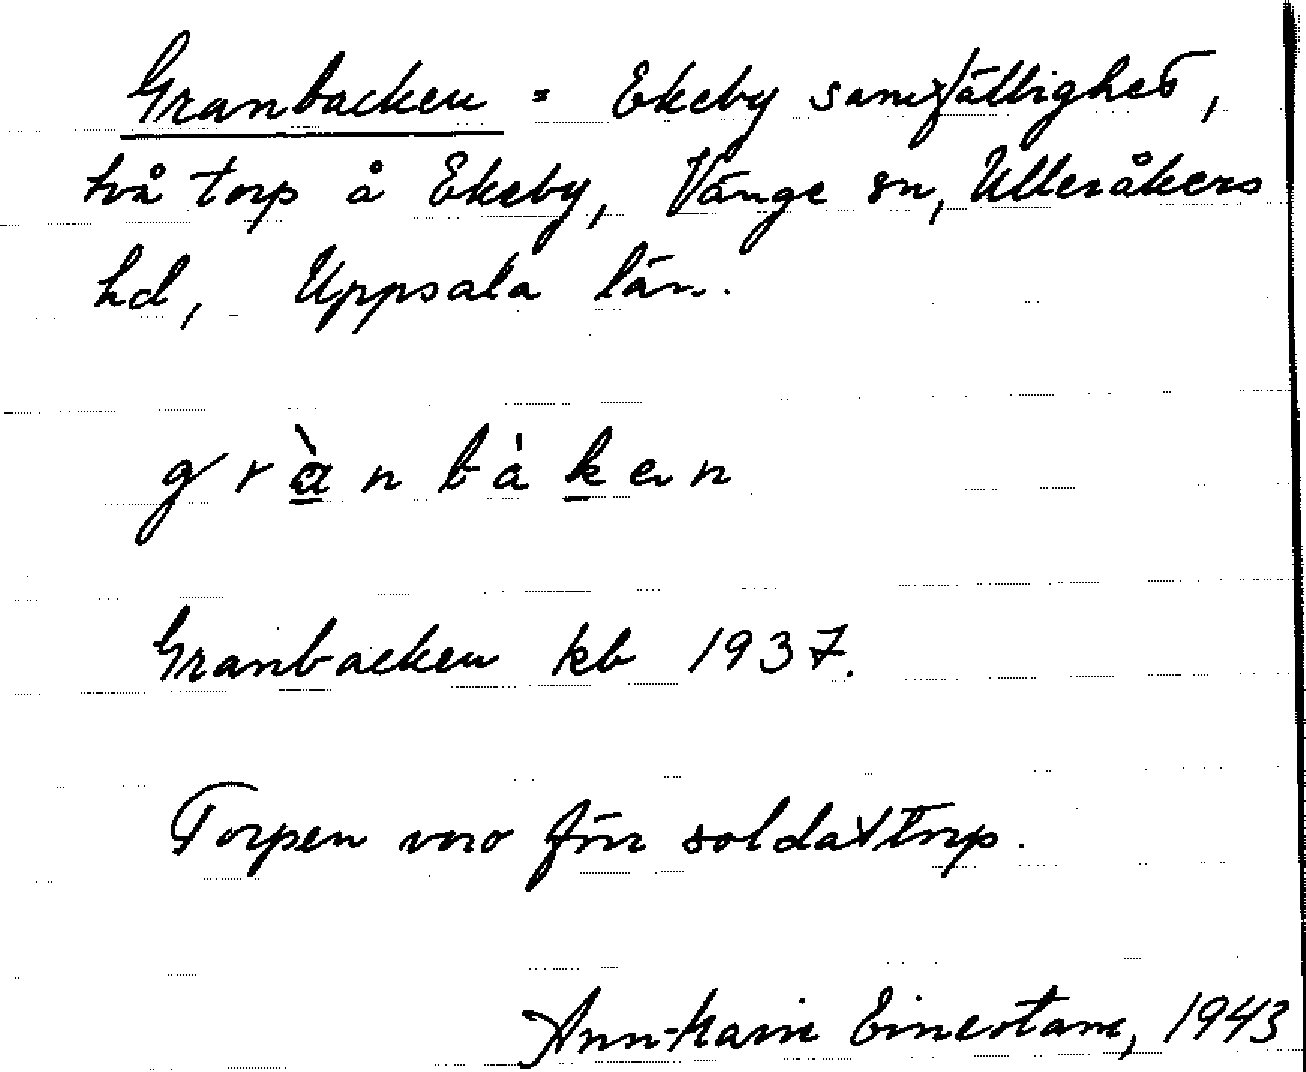 Granbacken = Ekeby samfällighet,
två torp å Ekeby, Vänge sn, Ulleråkers
hd, Uppsala län.
grànbàken
Granbacken kb 1937.
Torpen voro förr soldattorp.
Ann-Marie Einerstam, 1943